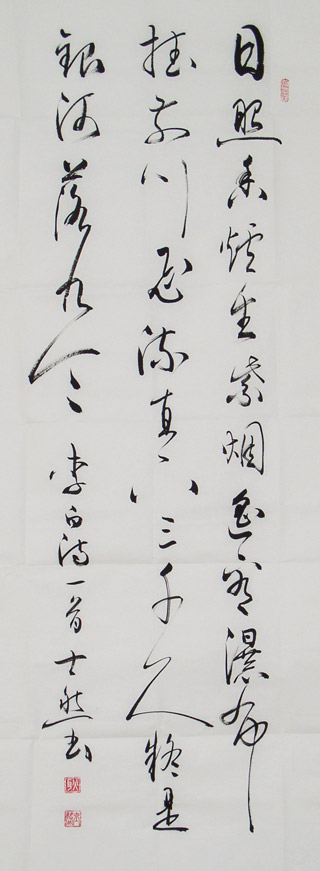 日照香爐生紫烟遥看瀑布
挂前川飛流直下三千尺疑是
銀河落九天 李白詩一首 士然书